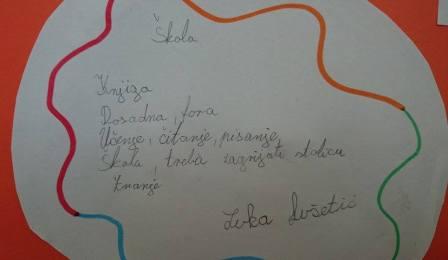 Škola
Knjiga
Dosadna, fora
Učenje, čitanje, pisanje
Škola, treba zagrijati stolicu
Znanje
Luka Lušetić